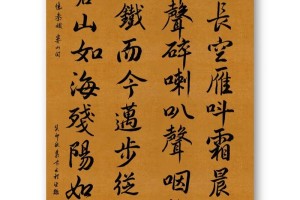 長空雁叫霜晨
聲碎喇叭聲咽
鐵而今邁步從
山如海殘陽如
憶秦娥 婁山関